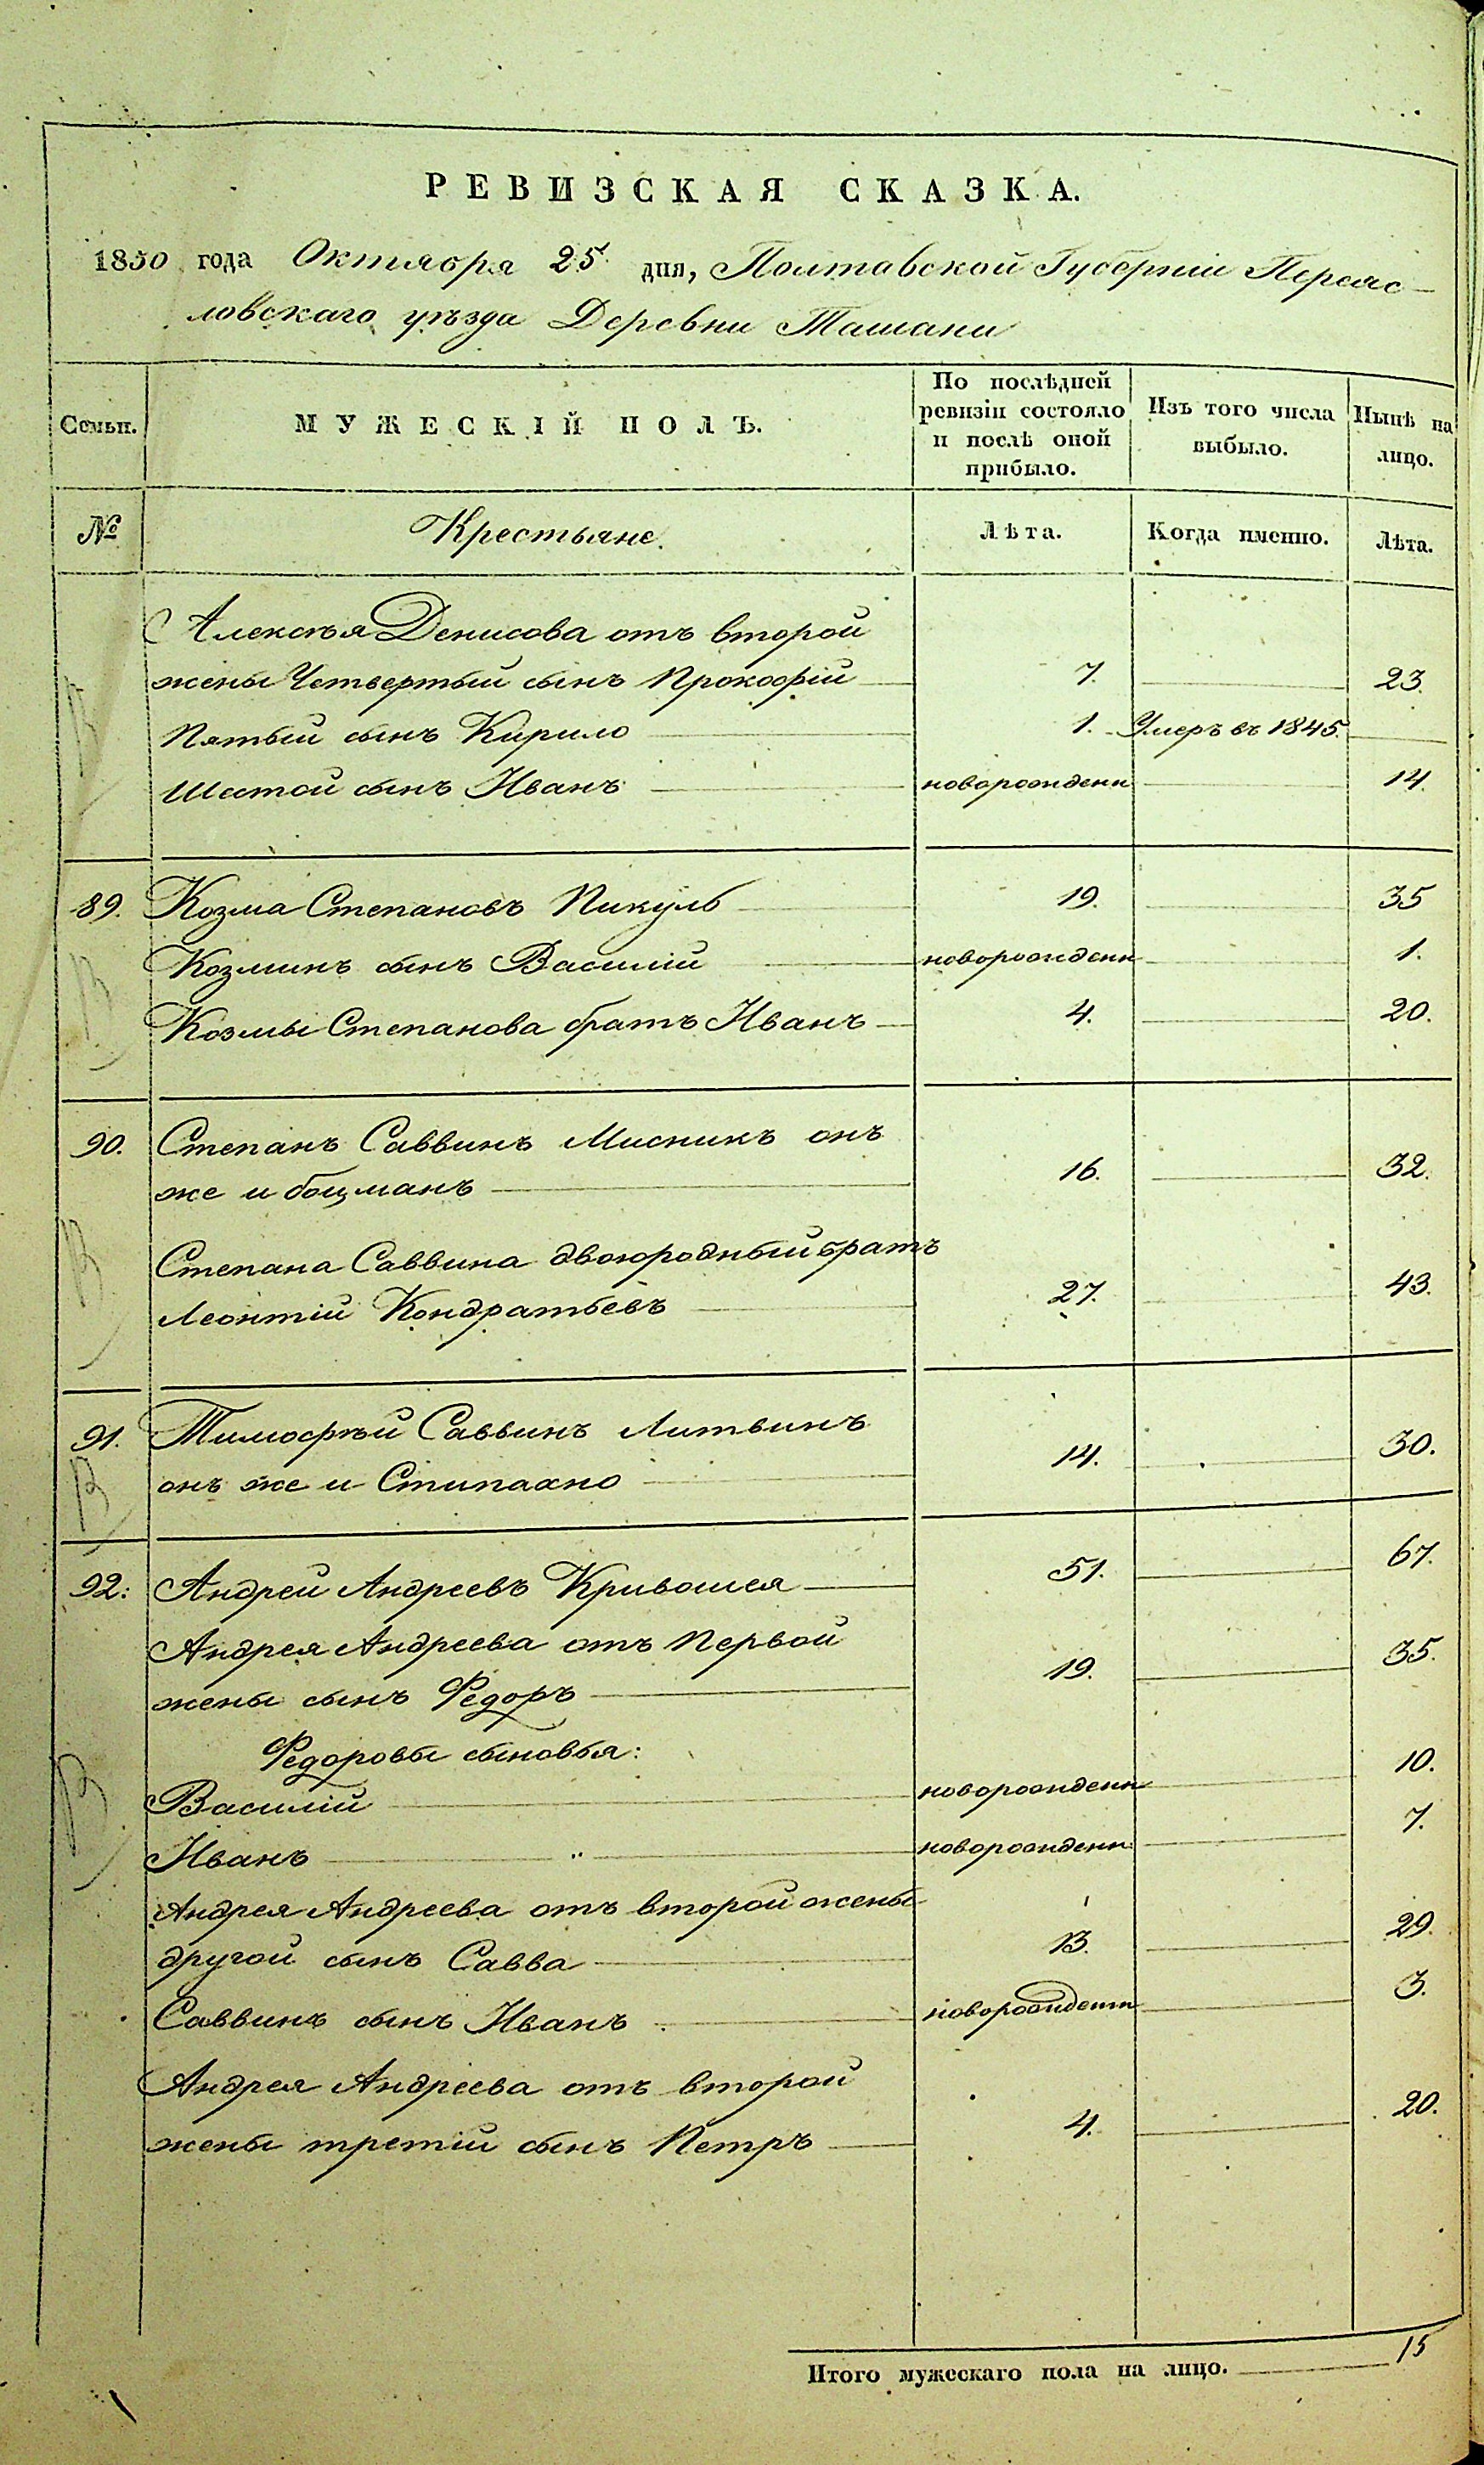 РЕВИЗСКАЯ СКАЗКА.
1850 года Октября 25 дня, Полтавской Губерніи Переяс-
ловскаго уѣзда Деревни Ташани
Семьи.
МУЖЕСКІЙ ПОЛЪ.
По послѣдней
ревизіи состояло
и послѣ оной
прибыло.
Изъ того числа
выбыло.
Нынѣ на
лицо.
№ Крестьяне. Лѣта. Когда именно. Лѣта.
Алексѣя Денисова отъ второй
жены Четвертый сынъ Прокофій 7. 23.
Пятый сынъ Кирило 1. Умеръ въ 1845.
Шестой сынъ Иванъ новорожденн 14.
89. Козма Степановъ Пикуль 19. 35
Козминъ сынъ Василій новорожденн 1.
Козмы Степанова братъ Иванъ 4. 20.
90. Степанъ Саввинъ Мисникъ онъ
же и боцманъ 16. 32.
Степана Саввина двоюродный братъ
Леонтій Кондратьевъ 27. 43.
91. Тимофѣй Саввинъ Литвинъ
онъ же и 14. 30.
92. Андрей Андреевъ Кривошея 51. 67.
Андрея Андреева отъ Первой
жены сынъ Федоръ 19. 35.
Федоровы сыновья:
Василій новорожденн 10.
Иванъ " новорожденн 7.
Андрея Андреева отъ второй жены
другой сынъ Савва 13. 29.
Саввинъ сынъ Иванъ новорожденн 3.
Андрея Андреева отъ второй
жены третій сынъ Петръ 4. 20.
Итого мужескаго пола на лицо. 15